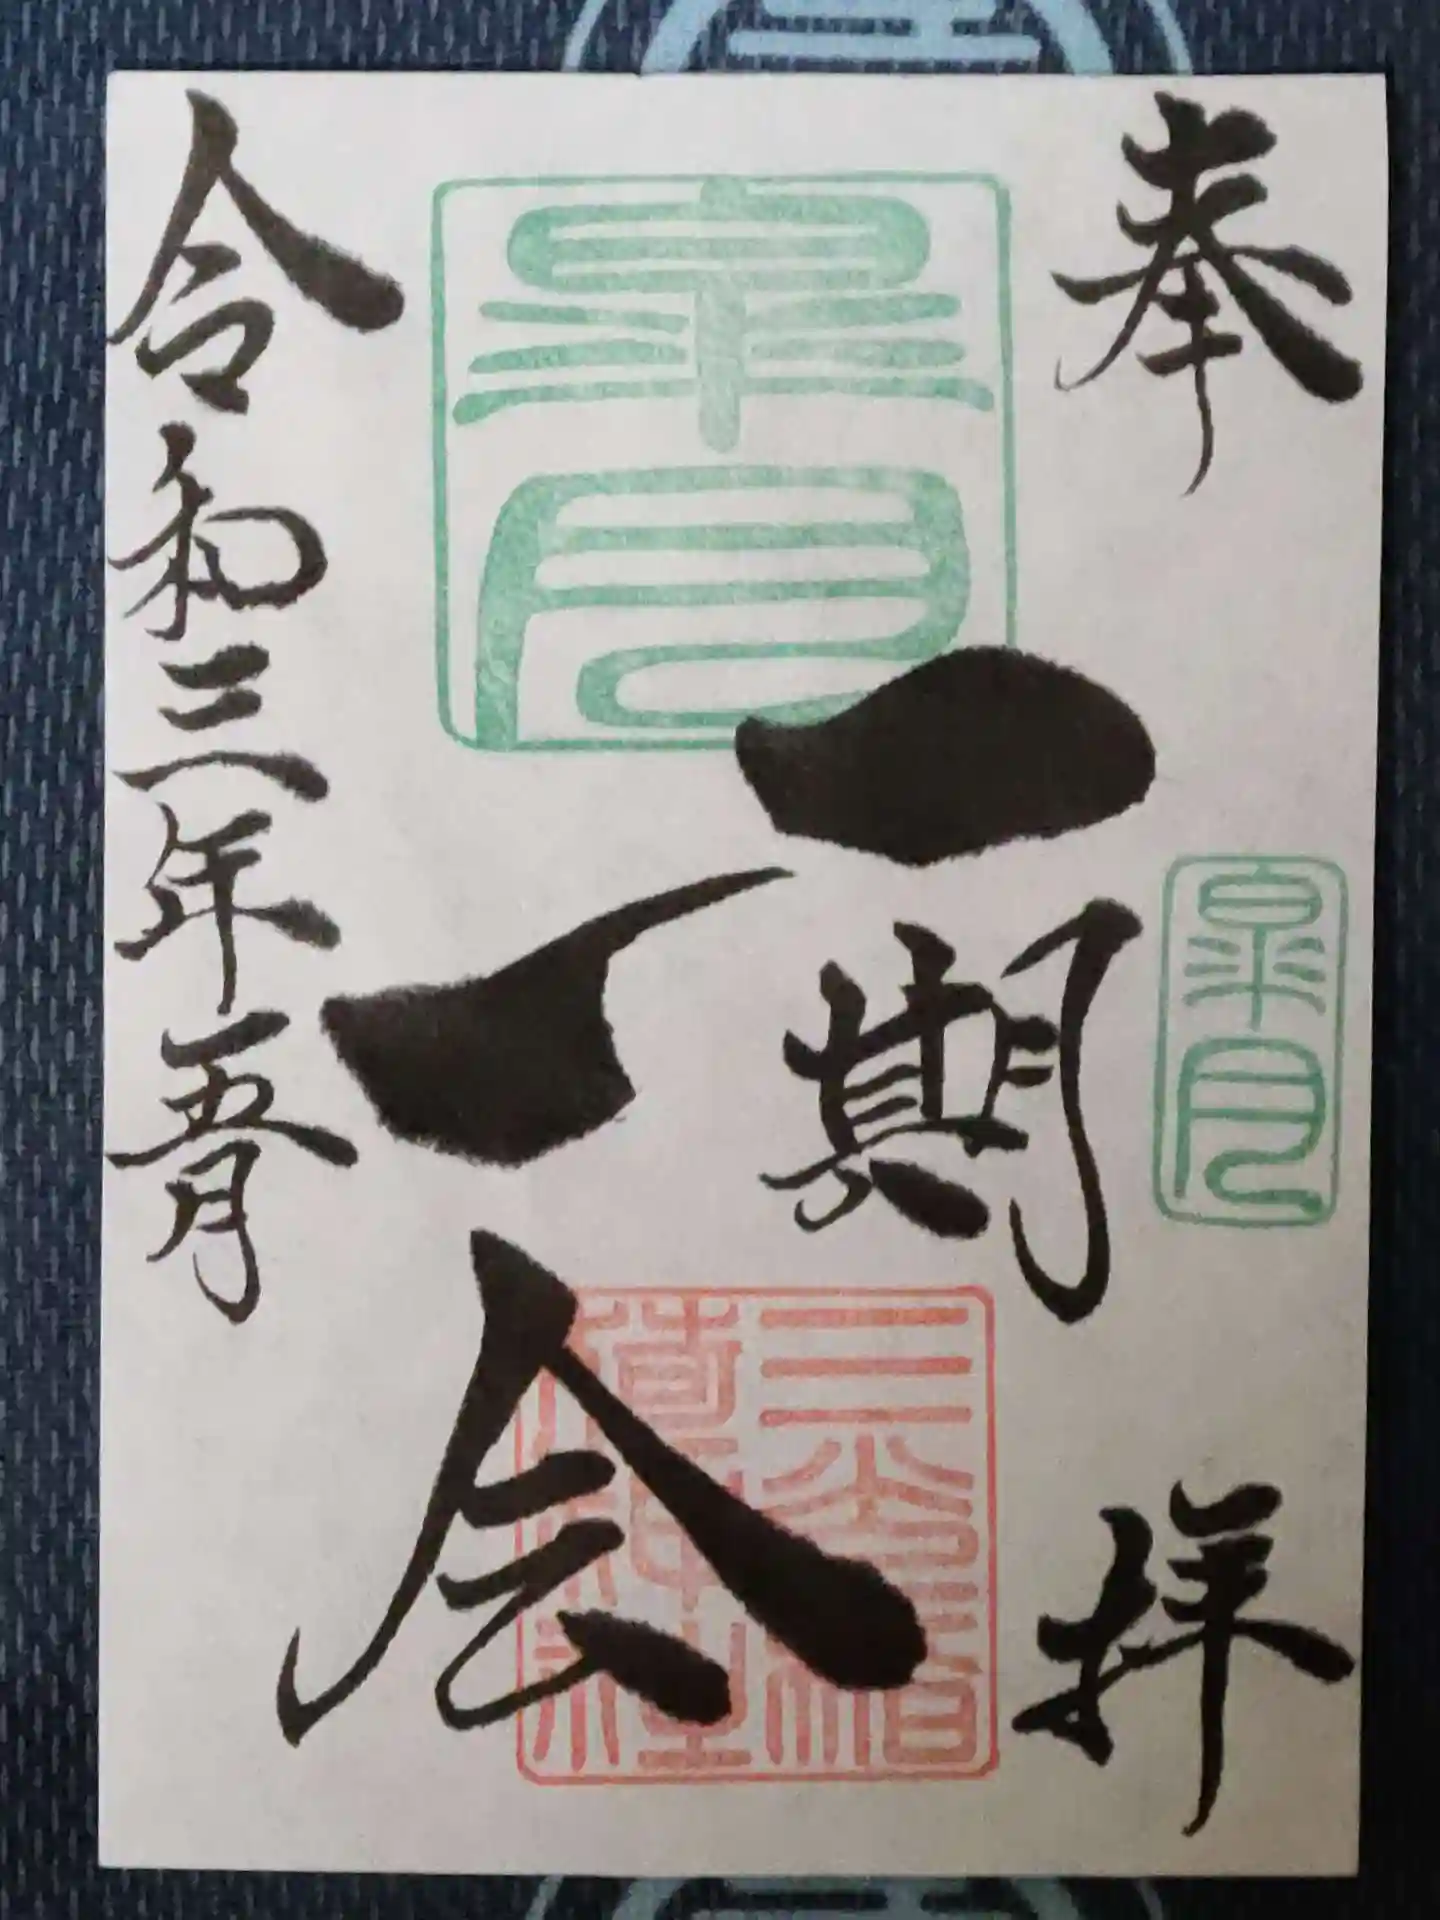 奉拝
皐月
皐月
一期
一会
三光稲荷神社
令和三年五月